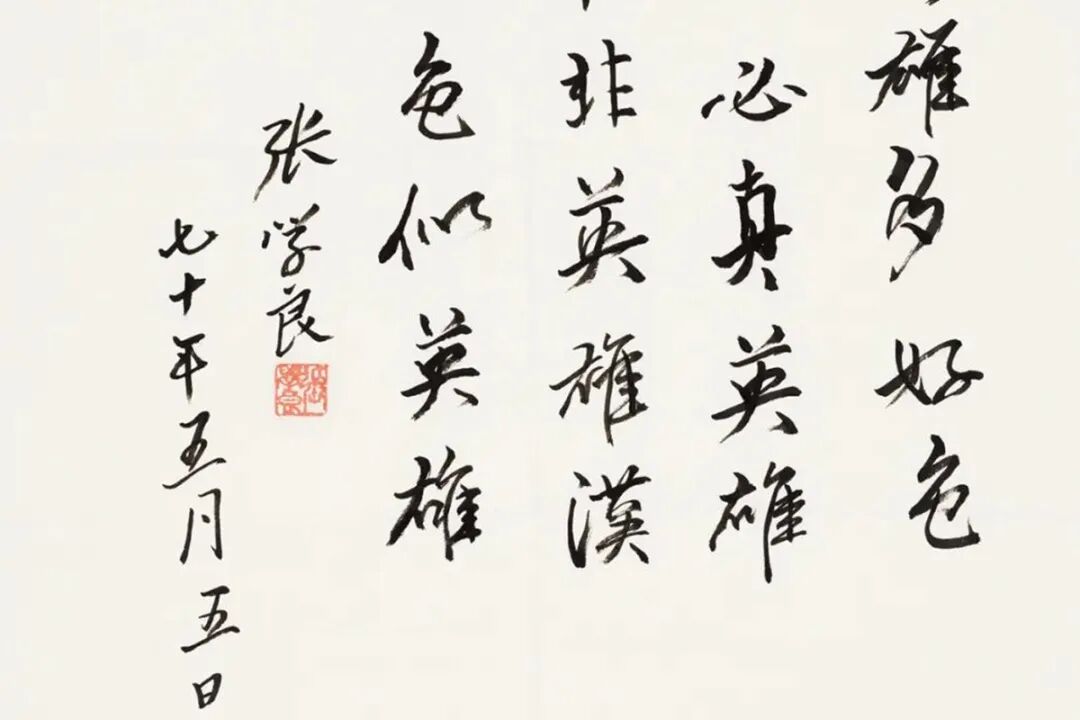 雄多好色
必真英雄
非英雄漢
色似英雄
张学良
七十年五月五日